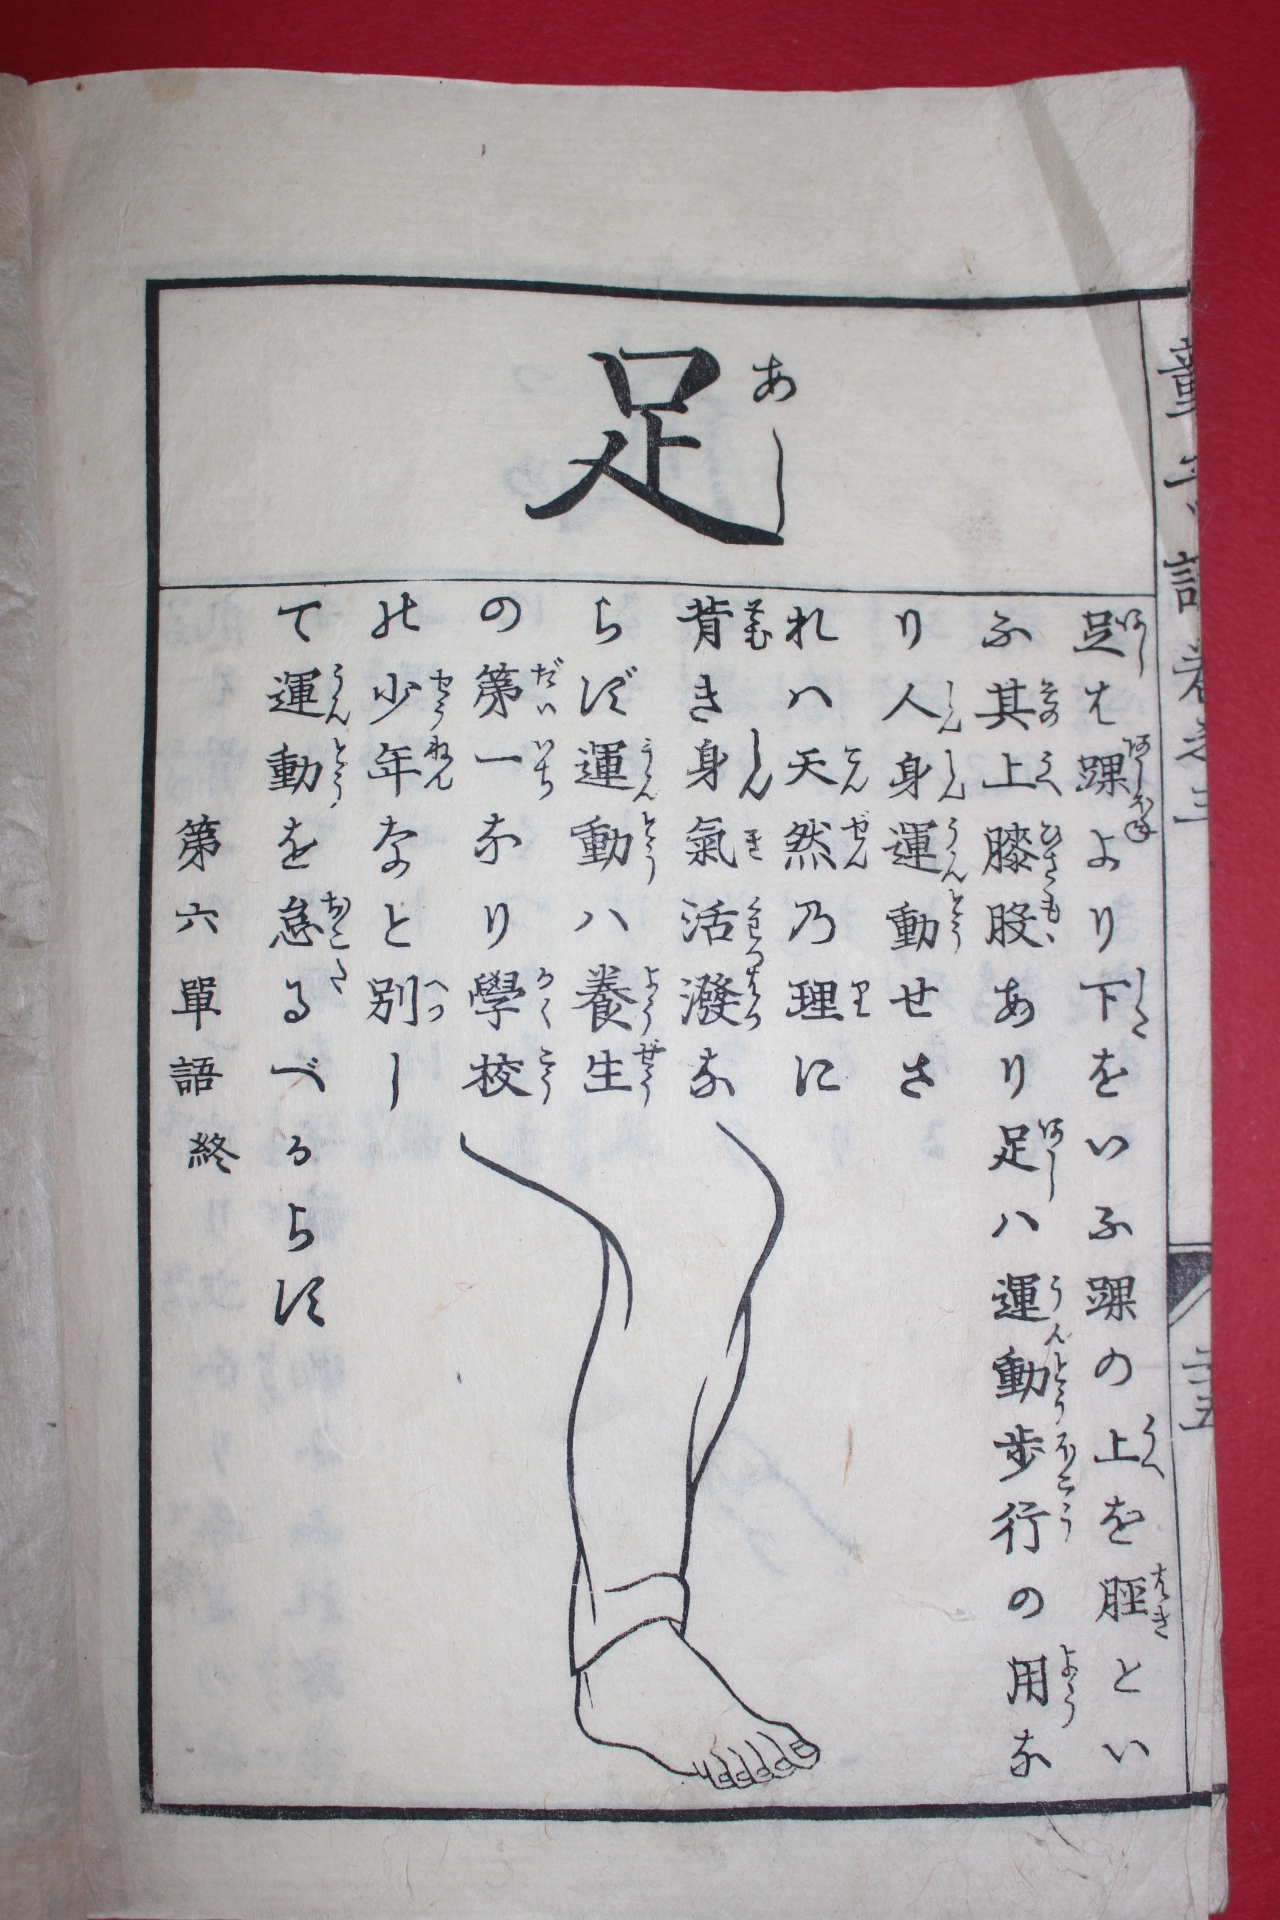 足
あし
足は踝より下をいふ踝の上を脛とい
ふ其上膝股あり足ハ運動歩行の用な
り人身運動せさ
れハ天然乃理に
背き身氣活潑な
らず運動ハ養生
の第一なり學校
の少年など別し
て運動を怠るべからず
第六單語終
二五